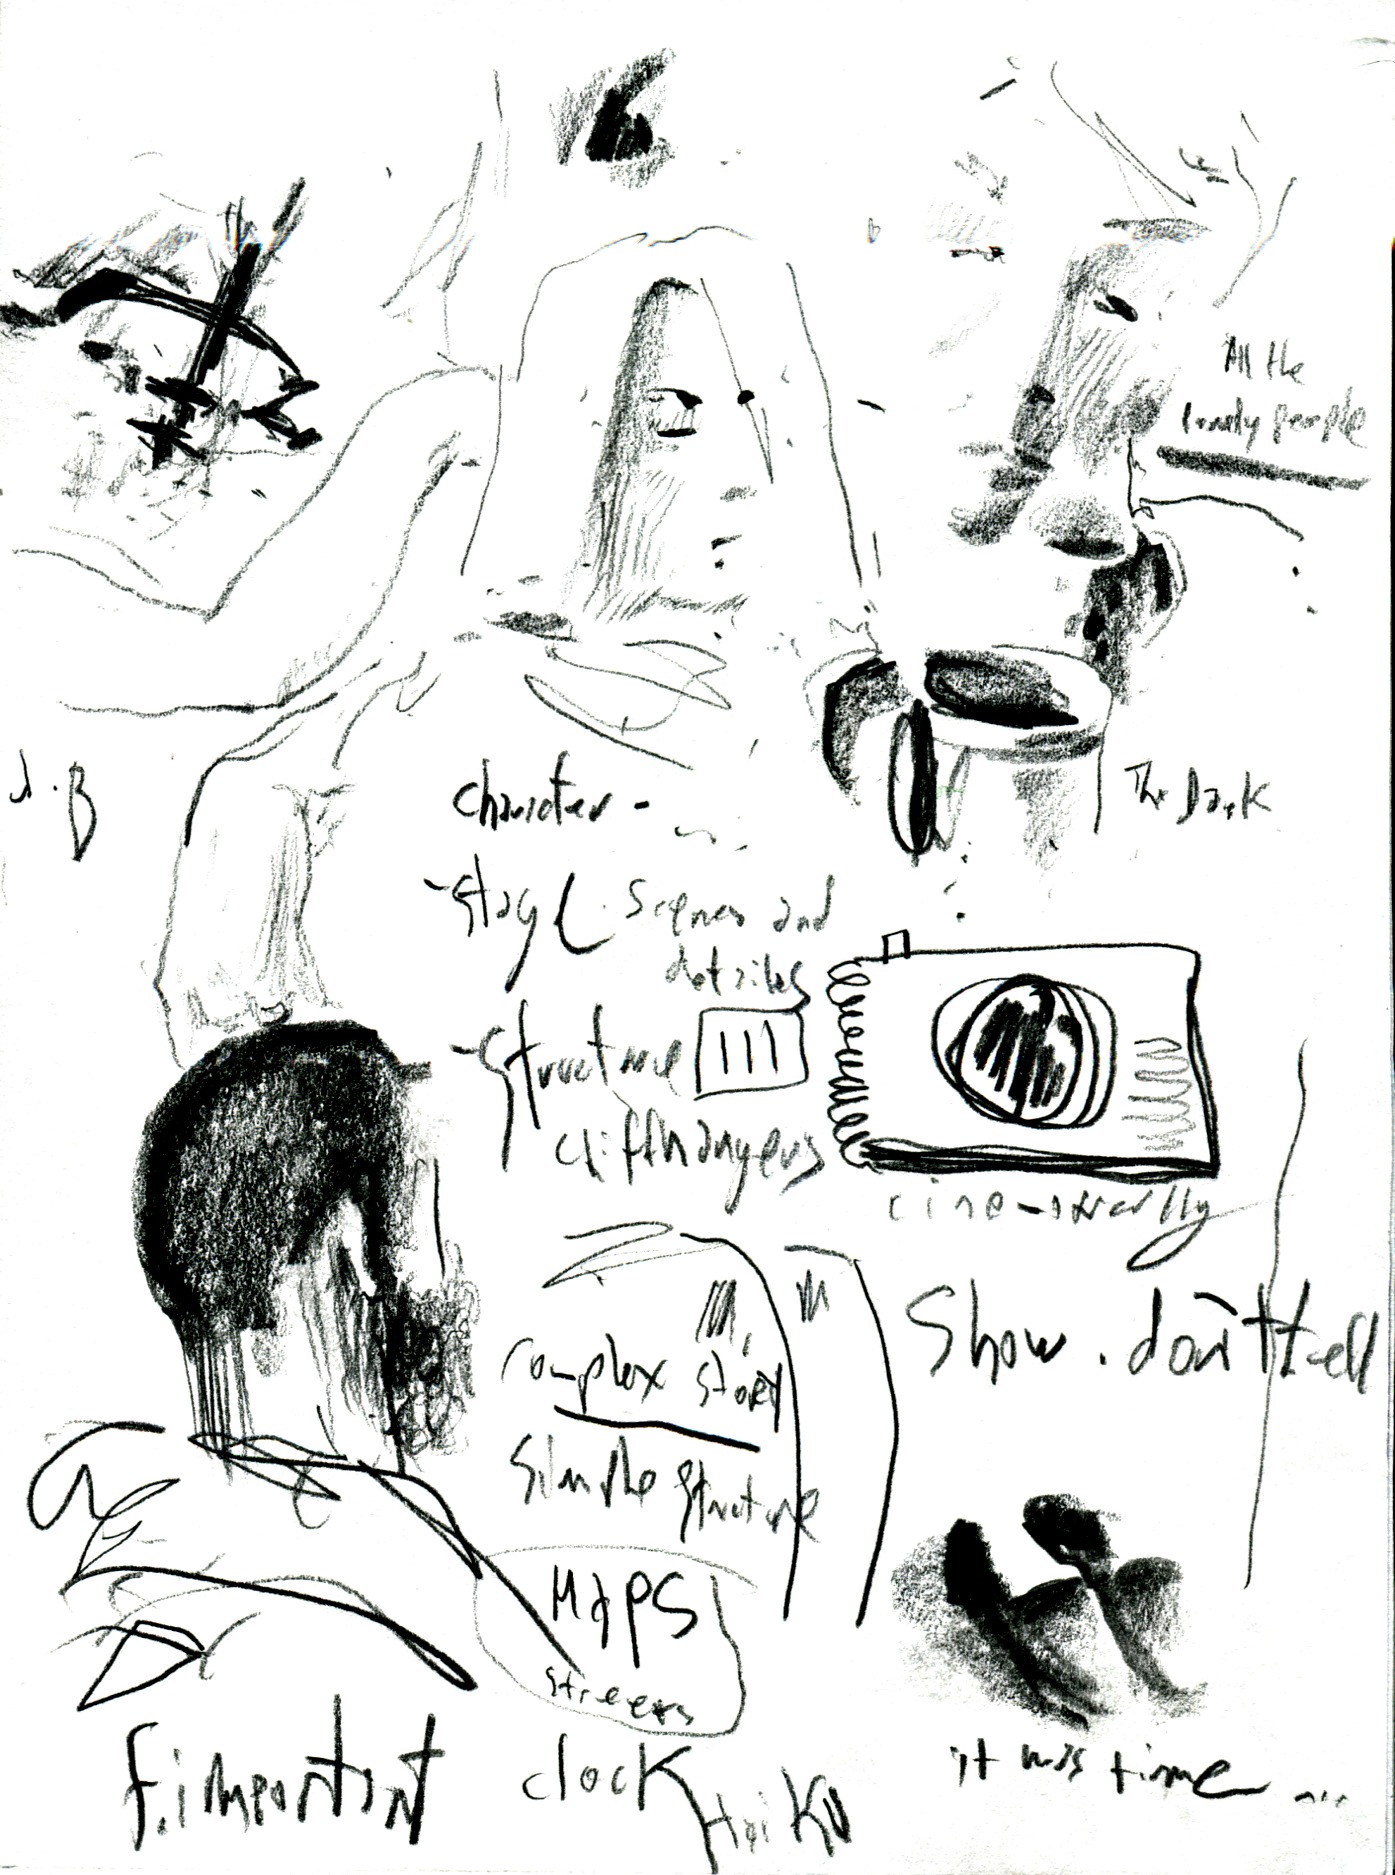 All the
lonely people
The Dark
J.B
Character -
- Stage Scenes and
detailes
- Structure
cliffhangers
Show. don't tell
complex story
Simple structure
MAPS
streets
f. important
clock
Haiku
it was time ...